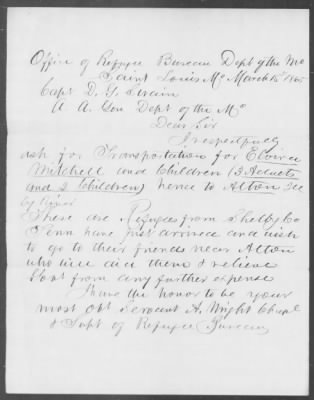 Office of Refugee Bureau Dept of the Mo
Saint Louis Mo March 15" 1865
Capt D. G. Swain
A A. Gen Dept of the Mo
Dear Sir
I respectfully
ask for Transportation for Elvira
Mitchell and Children (3 Adults
and 2 Children) hence to Alton Ill
by river
These are Refugees from Shelby Co
Tenn have just arrived and wish
to go to their friends near Alton
who will aid them & relieve
Govt from any further expense
I have the honor to be your
most obt Servant A. Wright Chapl
& Supt of Refugee Bureau